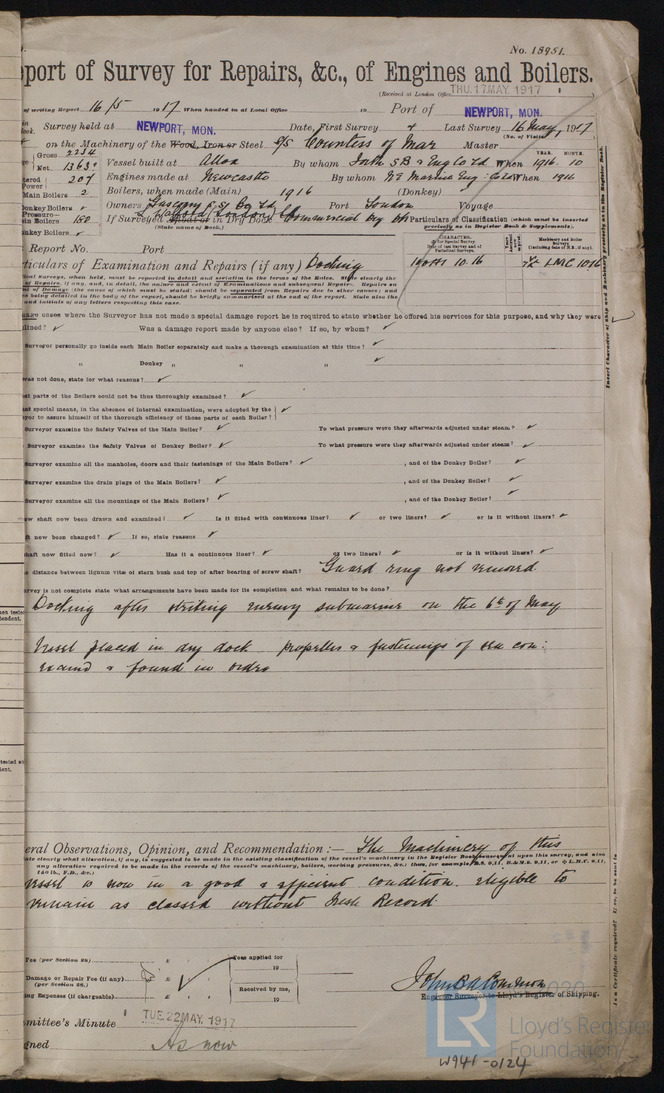 No. 18951.
port of Survey for Repairs, &c., of Engines and Boilers.
(Received at London Office THU. 17 MAY. 1917
of writing Report 16/5 1917 When handed in at Local Office 19 Port of NEWPORT, MON.
Survey held at NEWPORT, MON. Date, First Survey Last Survey 16 May, 1917
(No. of Visits
on the Machinery of the Wood, Iron or Steel S/S Countess of Mar Master
Gross 2234
Net 1363
Vessel built at Alloa By whom S.B & Eng Co Ld When 1916 10
YEAR. MONTH.
207
Engines made at Newcastle By whom N.E. Marine Eng. Co Ld When 1916
Power
Main Boilers
Boilers, when made (Main) 1916 (Donkey) ✓
Donkey Boilers ✓
Owners Port London Voyage
Pressure—
in Main Boilers 180
If Surveyed Afloat or in Dry Dock Commercial Dry
(State name of Dock.)
Donkey Boilers ✓
Particulars of Classification (which must be inserted
precisely as in Register Book & Supplements).
Report No. Port
CHARACTER.
Machinery and Boiler
Surveys
(including date of N.B., if any).
ticulars of Examination and Repairs (if any) Docking
100A1 10.16
LMC 10.16
ial Surveys, when held, must be reported in detail and seriatim in the terms of the Rules. State clearly the
of Repairs, if any, and, in detail, the nature and extent of Examinations and subsequent Repair. Repairs on
of Damage (the cause of which must be stated) should be separated from Repairs due to other causes; and
being detailed in the body of the report, should be briefly summarised at the end of the report. State also the
and initials of any letters respecting this case.
cases where the Surveyor has not made a special damage report he is required to state whether he offered his services for this purpose, and why they were
lined? ✓ Was a damage report made by anyone else? If so, by whom? ✓
Surveyor personally go inside each Main Boiler separately and make a thorough examination at this time? ✓
„ Donkey „ „ „ ✓
was not done, state for what reasons? ✓
parts of the Boilers could not be thus thoroughly examined? ✓
special means, in the absence of internal examination, were adopted by the
yor to assure himself of the thorough efficiency of those parts of each Boiler? ✓
Surveyor examine the Safety Valves of the Main Boiler? ✓ To what pressure were they afterwards adjusted under steam? ✓
Surveyor examine the Safety Valves of Donkey Boiler? ✓ To what pressure were they afterwards adjusted under steam? ✓
Surveyor examine all the manholes, doors and their fastenings of the Main Boilers? ✓ , and of the Donkey Boiler? ✓
Surveyor examine the drain plugs of the Main Boilers? ✓ , and of the Donkey Boiler? ✓
Surveyor examine all the mountings of the Main Boilers? ✓ , and of the Donkey Boiler? ✓
shaft now been drawn and examined? ✓ Is it fitted with continuous liner? ✓ or two liners? ✓ or is it without liners? ✓
now been changed? ✓ If so, state reasons ✓
shaft now fitted new? ✓ Has it a continuous liner? ✓ or two liners? ✓ or is it without liners? ✓
distance between lignum vitæ of stern bush and top of after bearing of screw shaft? Guard ring not removed
urvey is not complete state what arrangements have been made for its completion and what remains to be done?
Docking after striking enemy submarine on the 6th of May
Vessel placed in dry dock propeller & fastenings of sea con:
examd & found in order
eral Observations, Opinion, and Recommendation:— The Machinery of this
state clearly what alteration, if any, is suggested to be made in the existing classification of the vessel's machinery in the Register Book
any alteration required to be made in the records of the vessel's machinery, boilers, working pressures, &c.; thus, for example,
140 lb., F.D., &c.)
vessel is now in a good & efficient condition. eligible to
remain as classed without fresh Record.
Fee (per Section 28) £ Fees applied for
19
Damage or Repair Fee (if any) £
(per Section 28.)
Received by me,
ing Expenses (if chargeable) £ 19
Engineer Surveyor to Lloyd's Register of Shipping.
mittee's Minute TUE. 22 MAY. 1917
gned As now
LR
2020
Lloyd's Register
Foundation
W941-0124